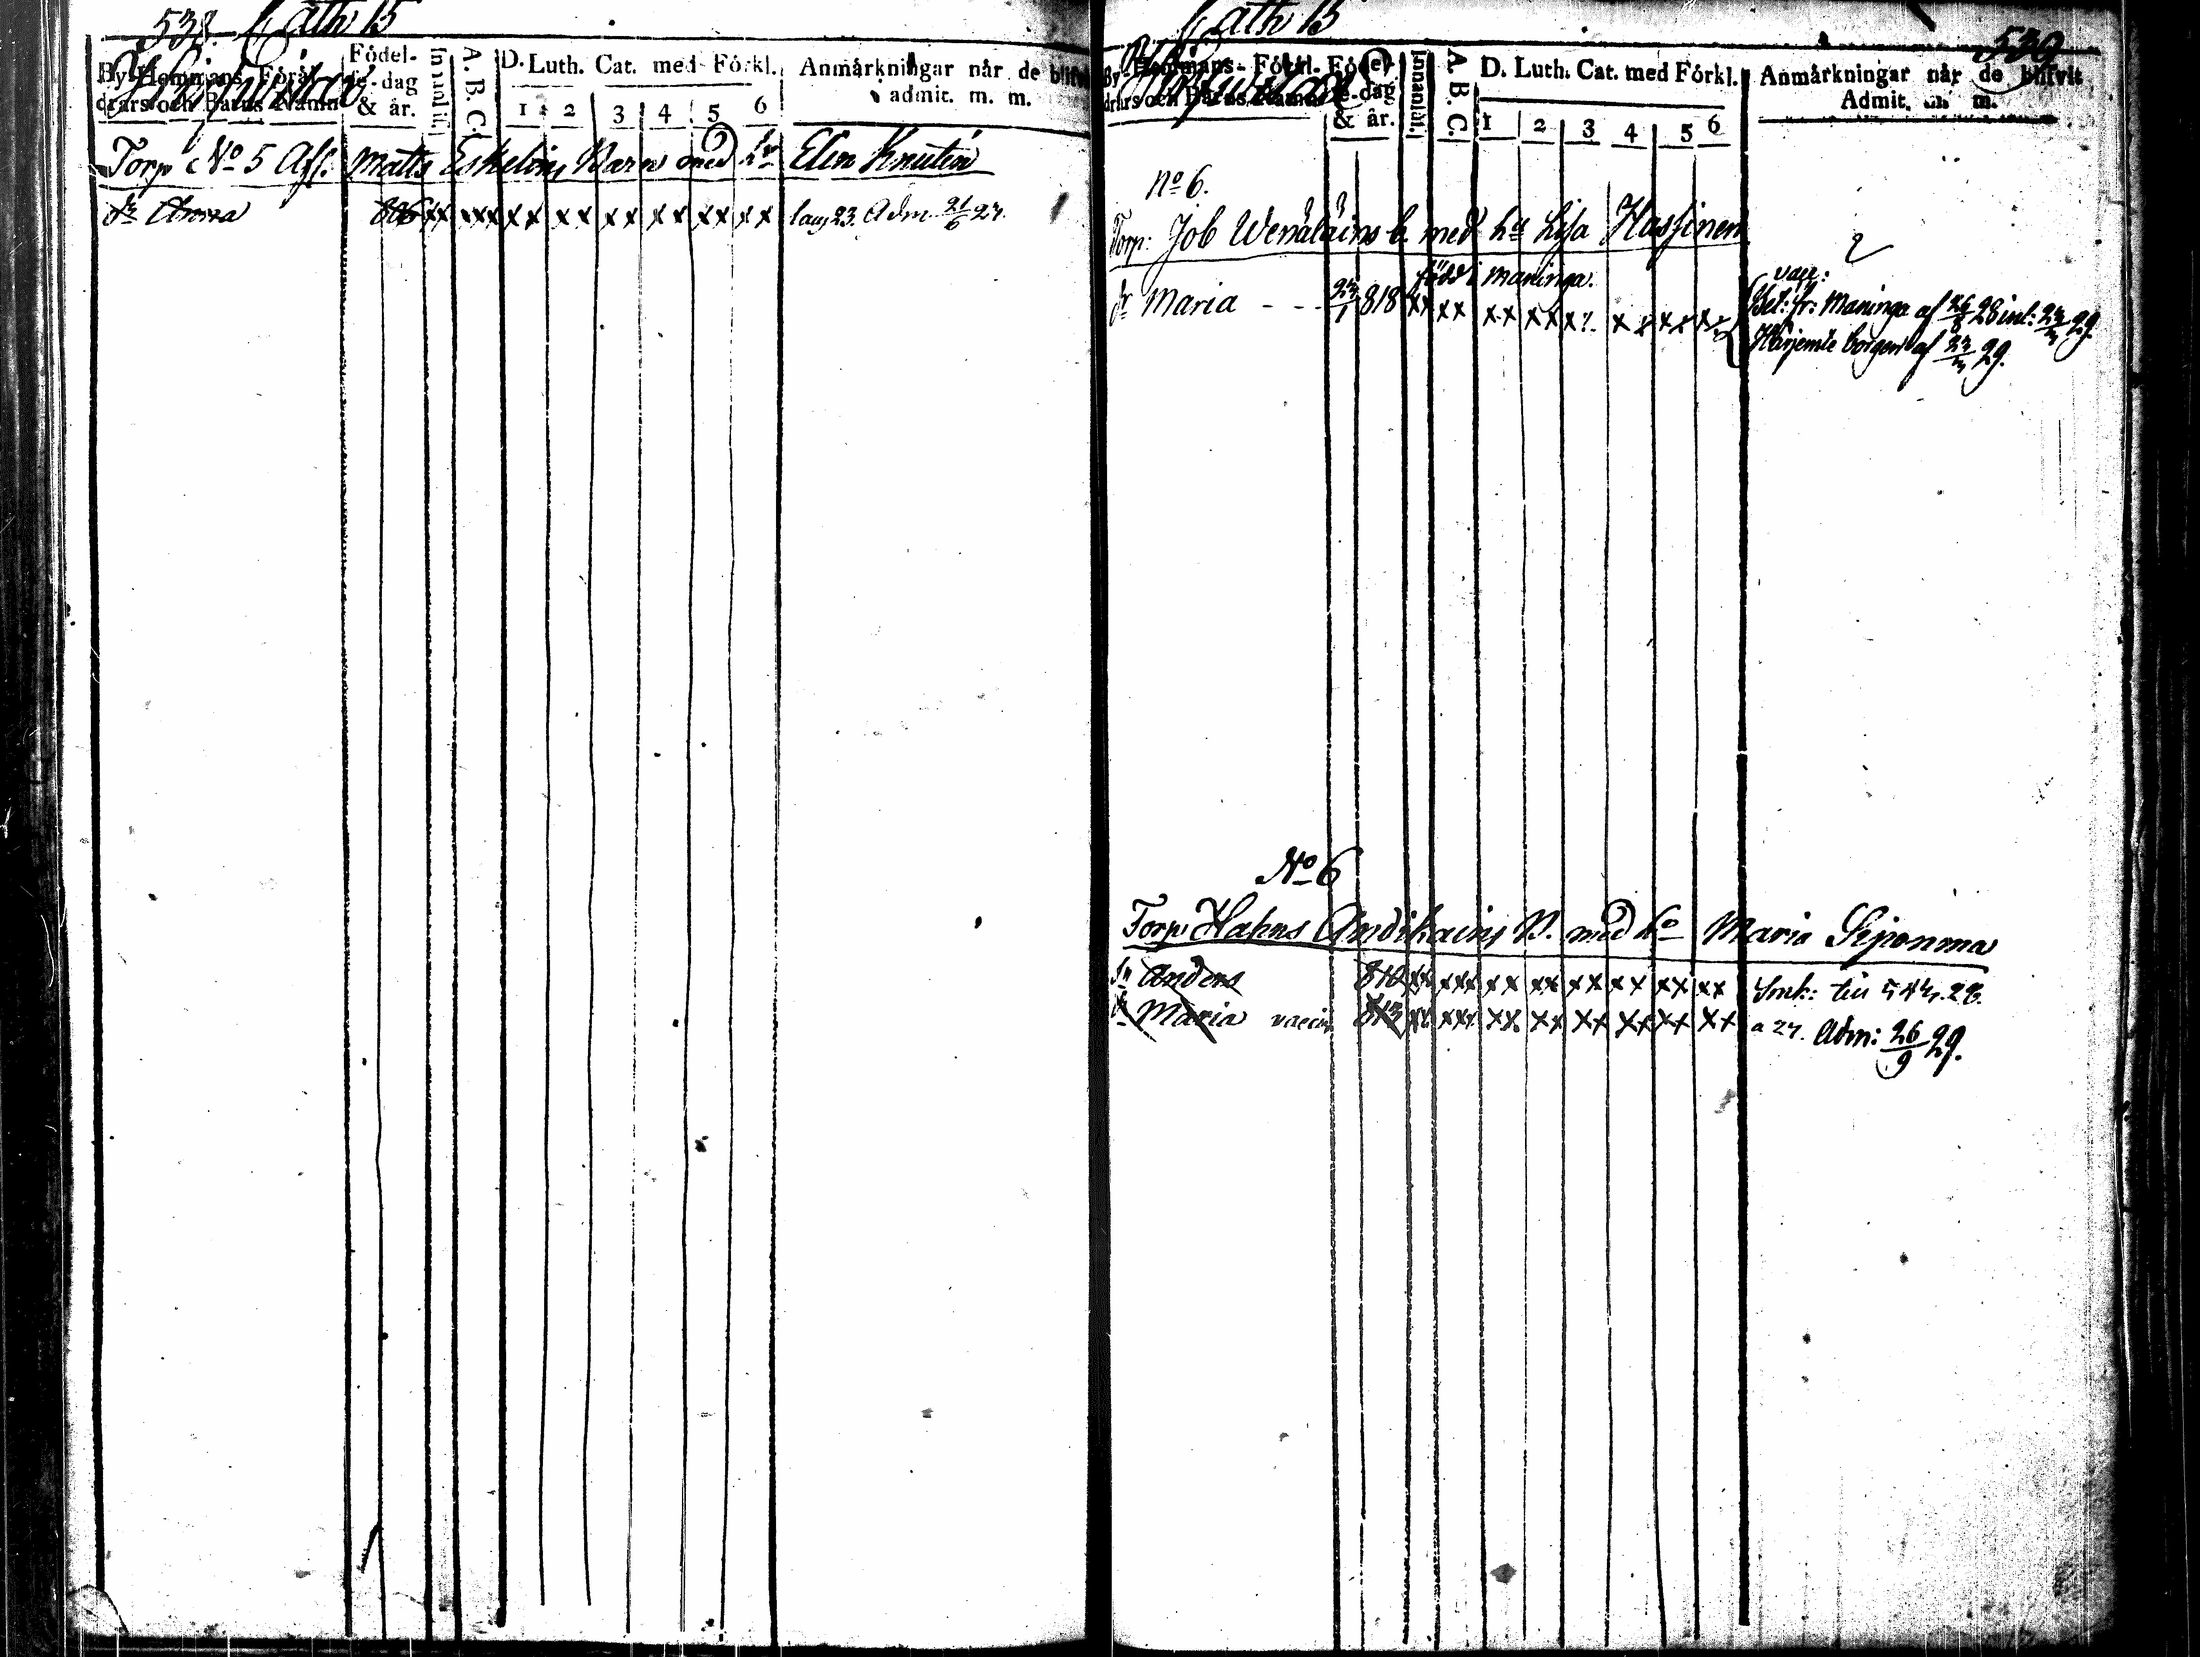 538. Cath 15
By, Hemmans, Föräl-
drars och Barns Namn
Födel-
se-dag
& år.
Innanläl.
A. B. C.
D. Luth. Cat. med Förkl.
1 2 3 4 5 6
Anmärkningar når de blifvit
admit. m. m.
Torp No 5 Afl. Matts Eskelins Barn med ho Elin Knutin
dr Anna 806 xx xxx xx xx xx xx xx xx lag 23. Adm 21/6 27.
Cath 15
539
By, Hemmans- Föräl-
drars och Barns Namn
Födel-
se-dag
& år.
Innanläl.
A. B. C.
D. Luth. Cat. med Förkl.
1 2 3 4 5 6
Anmärkningar når de blifvit
Admit. m. m.
No 6.
Torp: Job Wenäläins b. med ho Lisa Hassinen
född i Maninga.
vacc:
dr Maria - - 818 xx xx xx xx xx xx xx xx Bet: fr: Maninga af 26/8 28 inl:
Härjemte borgen af
No 6
Torp Hahns Andikains B. med ho Maria Siponma
Sn Anders 810 xx xxx xx xx xx xx xx xx
dr Maria vaccin 813 xx xxx xx xx xx xx xx xx a 27. Adm: 26/9 29.